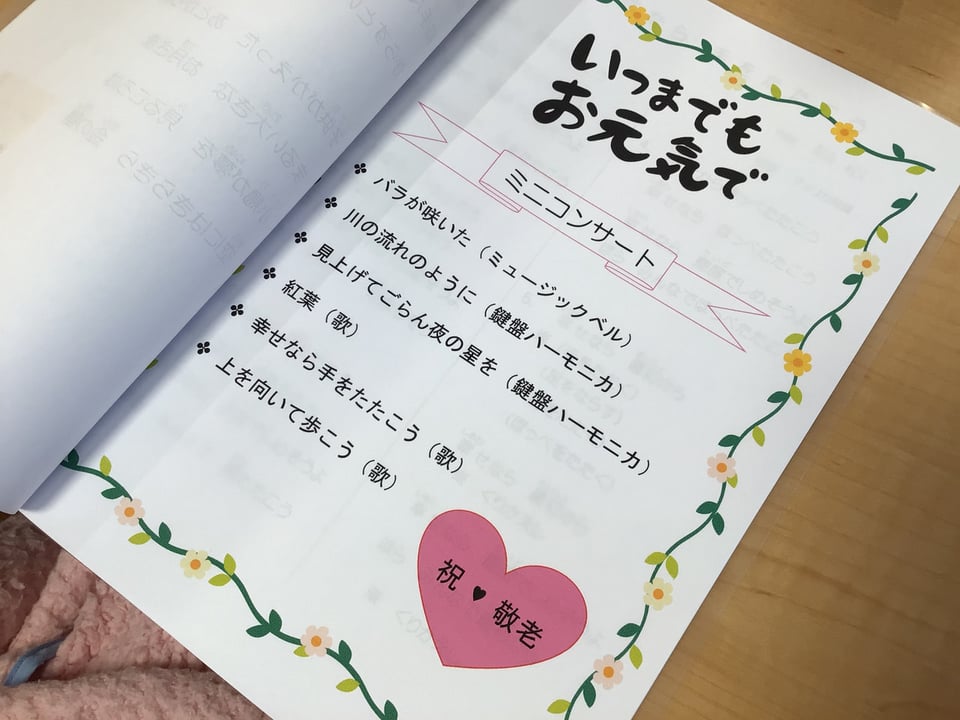 いつまでも
お元気で
ミニコンサート
バラが咲いた（ミュージックベル）
川の流れのように（鍵盤ハーモニカ）
見上げてごらん夜の星を（鍵盤ハーモニカ）
紅葉（歌）
幸せなら手をたたこう（歌）
上を向いて歩こう（歌）
祝♥敬老